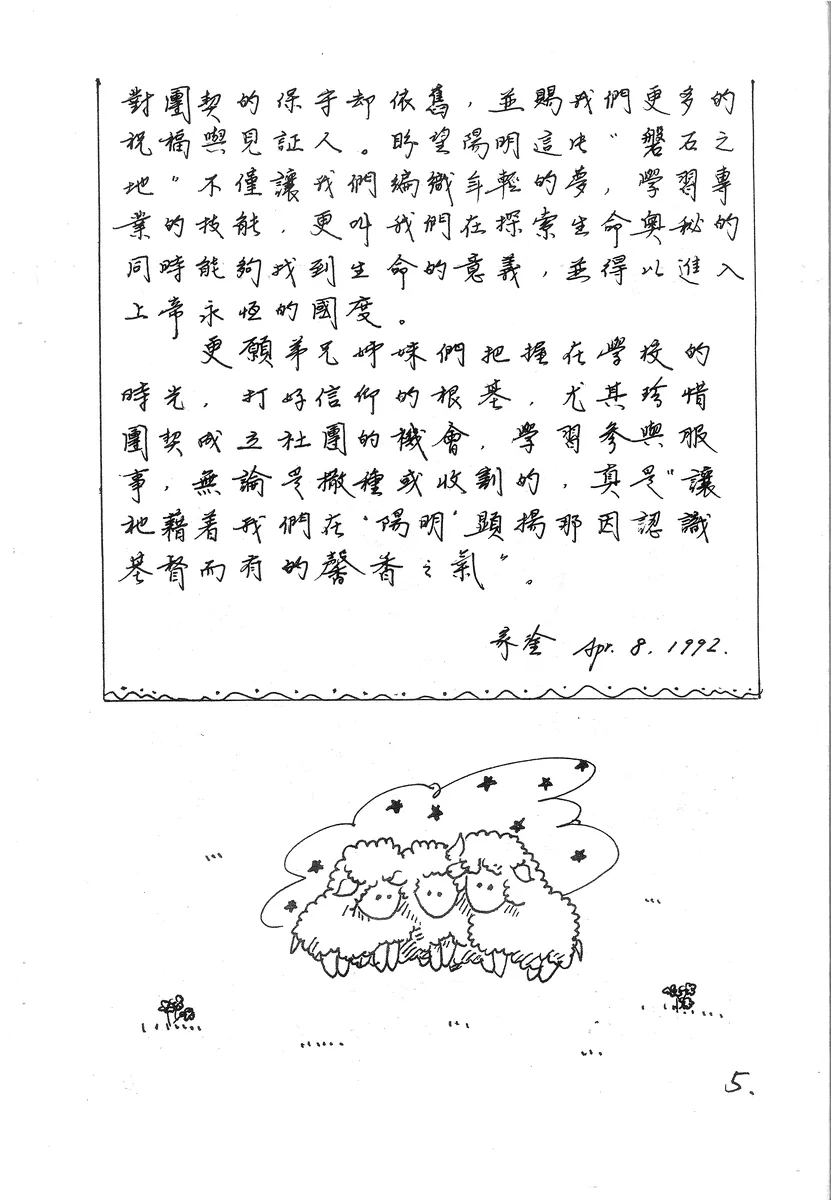 對團契的保守却依舊，並賜我們更多的
祝福與見証人。盼望陽明這片“磐石之
地”不僅讓我們編織年輕的夢，學習專
業的技能，更叫我們在探索生命奧秘的
同時能夠找到生命的意義，並得以進入
上帝永恒的國度。
更願弟兄姊妹們把握在學校的
時光，打好信仰的根基，尤其珍惜
團契成立社團的機會，學習參與服
事，無論是撒種或收割的，真是“讓
祂藉着我們在‘陽明’顯揚那因認識
基督而有的馨香之氣”。
家瑩 Apr. 8. 1992.
5.